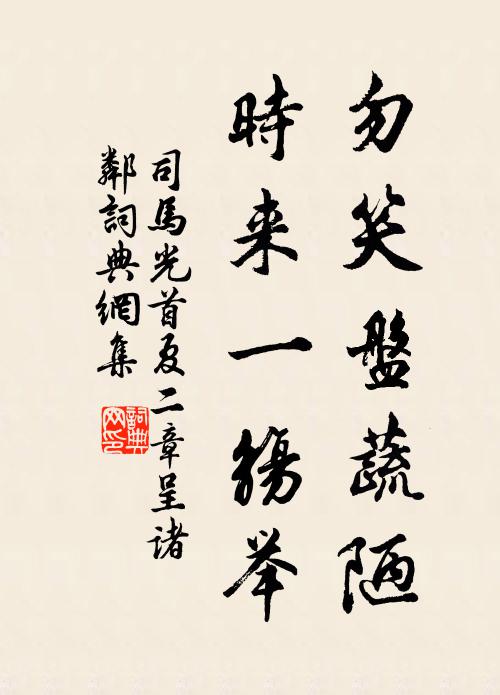 勿笑盤蔬陋
時来一觴举
司馬光首夏二章呈諸
鄰詞典網集
詞典网印